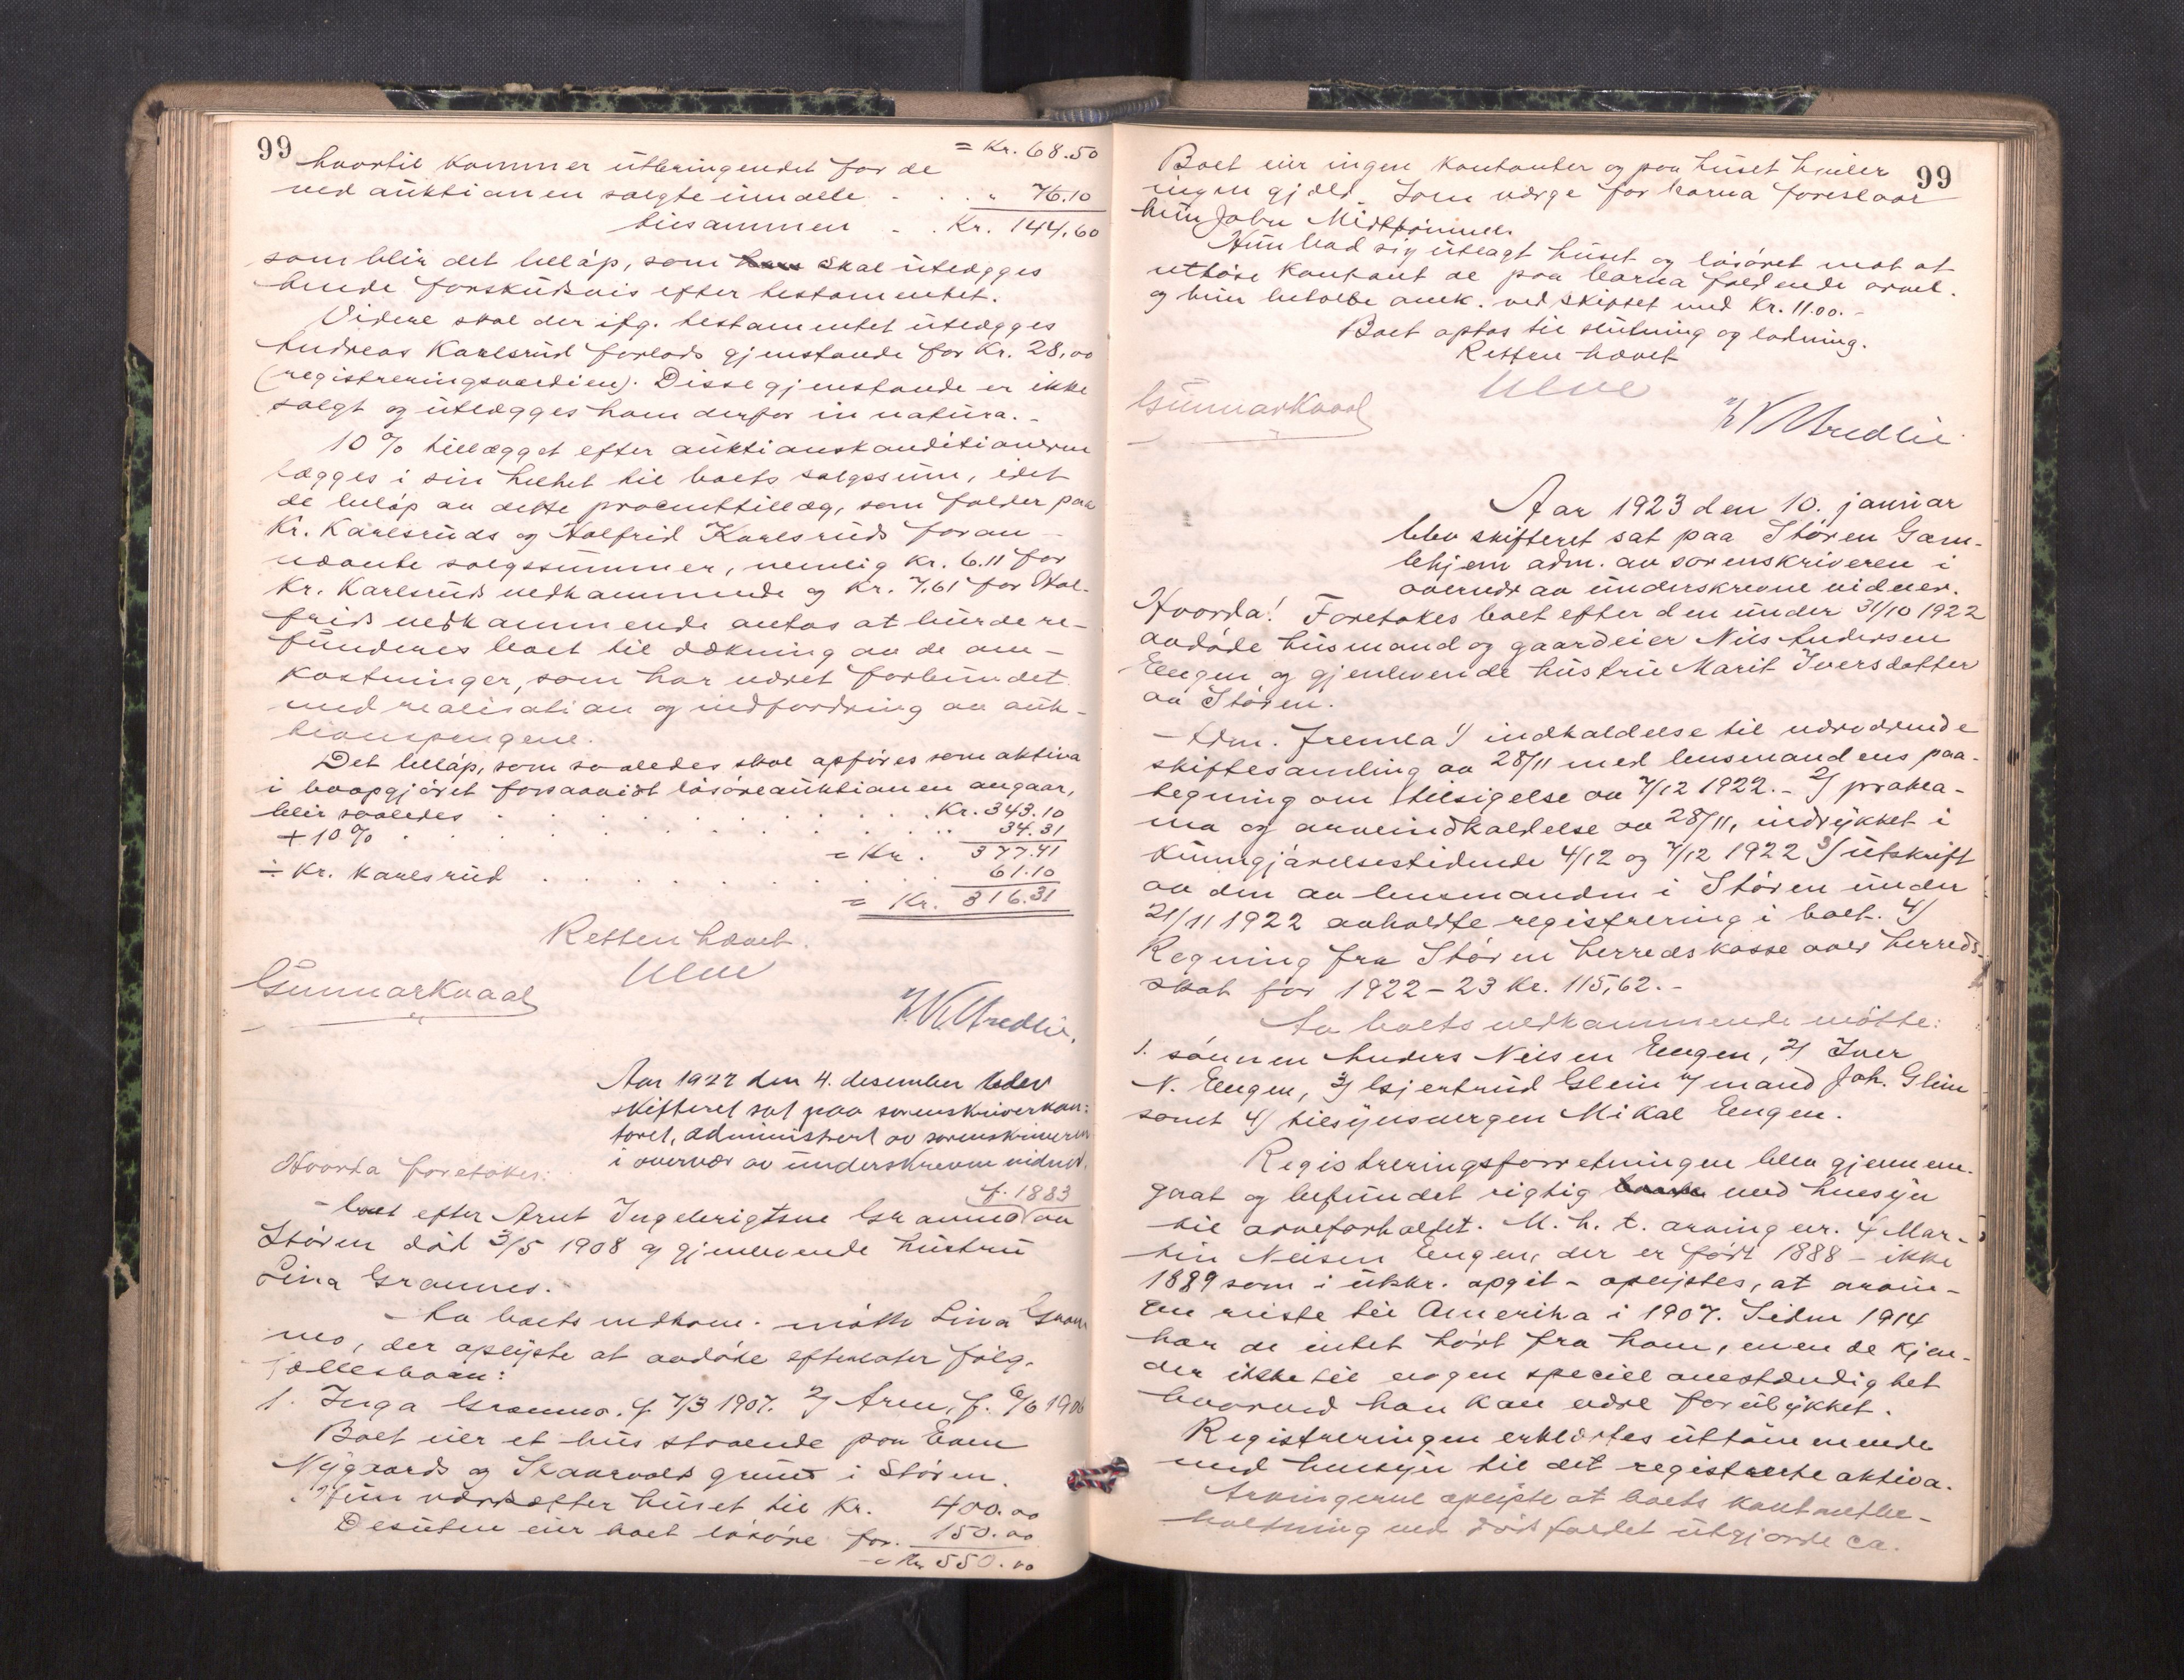 99
= Kr. 68.50
hvortil kommer utbringendet for de
ved auktionen solgte inndele - . . " 76.10
tilsammen - . Kr. 144.60
som blir det beløp, som skal utlægges
hende forskudsvis efter testamentet.
Videre skal der ifg. testamentet utlægges
Andreas Karlsrud forlods gjenstande for Kr. 28,00
(registreringsværdien). Disse gjenstande er ikke
solgt og utlægges ham derfor in natura. -
10 % tillægget efter auktionskonditionerne
lægges i sin helhet til boets salgssum, idet
de beløp av dette procenttillæg, som falder paa
Kr. Karlsruds og Halfrid Karlsruds foran-
nævnte salgssummer, nemlig kr. 6.11 for
Kr. Karlsruds vedkommende og kr. 7.61 for Hal-
frids vedkommende antas at burde re-
funderes boet til dækning av de om-
kostninger, som har været forbundet
med realisation og indfordring av auk-
tionspengene.
Det beløp, som saaledes skal opføres som aktiva
i boopgjøret forsaavidt løsøreauktionen angaar,
blir saaledes . . . . . . . Kr. 343.10
+ 10 % . . . . . . . 34.31
= Kr. 377.41
÷ Kr. Karlsrud . . . . . . . 61.10
= Kr. 316.31
Retten hævet.
Ulve
Gunnar Kvaal
Aar 1922 den 4. desember blev
skifteret sat paa sorenskriverkon-
toret, administrert av sorenskriveren
i overvær av underskrevne vidner.
Hvorda foretokes:
f. 1883
- boet efter Arnt Ingebrigtsen Granmo av
Støren död 3/5 1908 og gjenlevende hustru
Lina Granmo.
- Av boets vedkom. møtte Lina Gran-
mo, der oplyste at avdøde efterlater følg.
fællesbarn:
1. Inga Granmo. f. 7/3 1907. 2/ Arne, f. 6/6 1906
Boet eier et hus staaende paa Even
Nygaards og Skaarvolds grund i Støren.
Hun værdsætter huset til Kr. 400.00
Desuten eier boet løsøre for. 150.00
= Kr. 550.00
99
Boet eier ingen kontanter og paa huset hviler
ingen gjæld. Som værge for barna foreslaar
hun John
Hun bad sig utlagt huset og løsøret mot at
utløse kontant de paa barna faldende arvel.
og hun betalte omk. ved skiftet med Kr. 11.00. -
Boet optas til slutning og lodning.
Retten hævet
Ulve
Gunnar Kvaal
Aar 1923 den 10. januar
blev skifteret sat paa Støren Gam-
lehjem adm. av sorenskriveren i
overvær av underskrevne vidner.
Hvorda! Foretokes boet efter den under 31/10 1922
avdøde husmand og gaardeier Nils Andersen
Engen og gjenlevende hustru Marit Iversdatter
av Støren.
- Adm. fremla 1/ indkaldelse til nærværende
skiftesamling av 28/11 med lensmandens paa-
tegning om tilsigelse av 7/12 1922. - 2/ prokla-
ma og arveindkaldelse av 28/11, indrykket i
Kunngjørelsestidende 4/12 og 7/12 1922 3/ utskrift
av den av lensmanden i Støren under
21/11 1922 avholdte registrering i boet. 4/
Regning fra Støren herredskasse over herreds-
skat for 1922 - 23 Kr. 115,62. -
Av boets vedkommende møtte:
1. sønnen Anders Nilsen Engen, 2/ Iver
N. Engen, 3/ Gjertrud Glein v/ mand Joh. Glein
samt 4/ tilsynsvergen Mikal Engen.
Registreringsforretningen blev gjennem-
gaat og befundet rigtig med hensyn
til arveforholdet. M. h. t. arving nr. 4 Mar-
tin Nilsen Engen, der er født 1888 - ikke
1889 som i utskr. opgit - oplystes, at arvin-
gen reiste til Amerika i 1907. Siden 1914
har de intet hørt fra ham, men de kjen-
der ikke til nogen speciel omstændighet
hvorved han kan være forulykket.
Registreringen erklærtes uttømmende
med hensyn til det registrerte aktiva.
Arvingerne oplyste at boets kontantbe-
holdning ved dødsfaldet utgjorde ca.